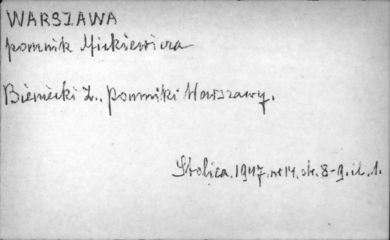 WARSZAWA
pomnik Mickiewicza
Bieniecki Z., Pomniki Warszawy.
Stolica. 1947. nr 14. str. 8-9. il. 1.